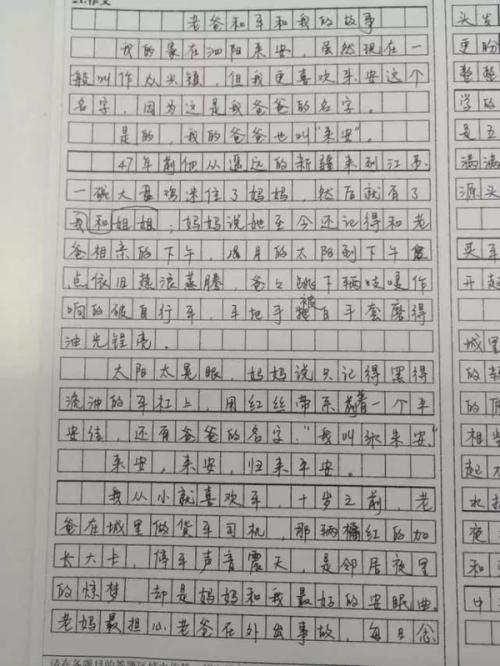 老爸和车和我的故事
我的家在泗阳来安，虽然现在一
般叫作众兴镇，但我更喜欢来安这个
名字，因为这是我爸爸的名字。
是的，我的爸爸也叫"来安"。
47年前他从遥远的新疆来到江苏，
一碗大盘鸡迷住了妈妈，然后就有了
我和姐姐；妈妈说她至今还记得和老
爸相亲的下午，月的太阳到下午
点依旧热浪蒸腾，爸爸跳下辆吱嘎作
响的破自行车，车把手被手套磨得
油光锃亮。
太阳太晃眼，妈妈说只记得黑得
流油的车杠上，用红丝带系着一个平
安结，还有爸爸的名字："我叫张来安。"
来安，来安，归来平安。
我从小就喜欢车，十岁之前，老
爸在城里做货车司机，那辆橘红的加
长大卡，停车声音震天，是邻居夜里
的惊梦，却是妈妈和我最好的安眠曲。
老妈最担心老爸在外出事故，每日念
头发
更盼
整整
学的
是五
满满
源头
买车
开起
城里
的
相当
起
和
中